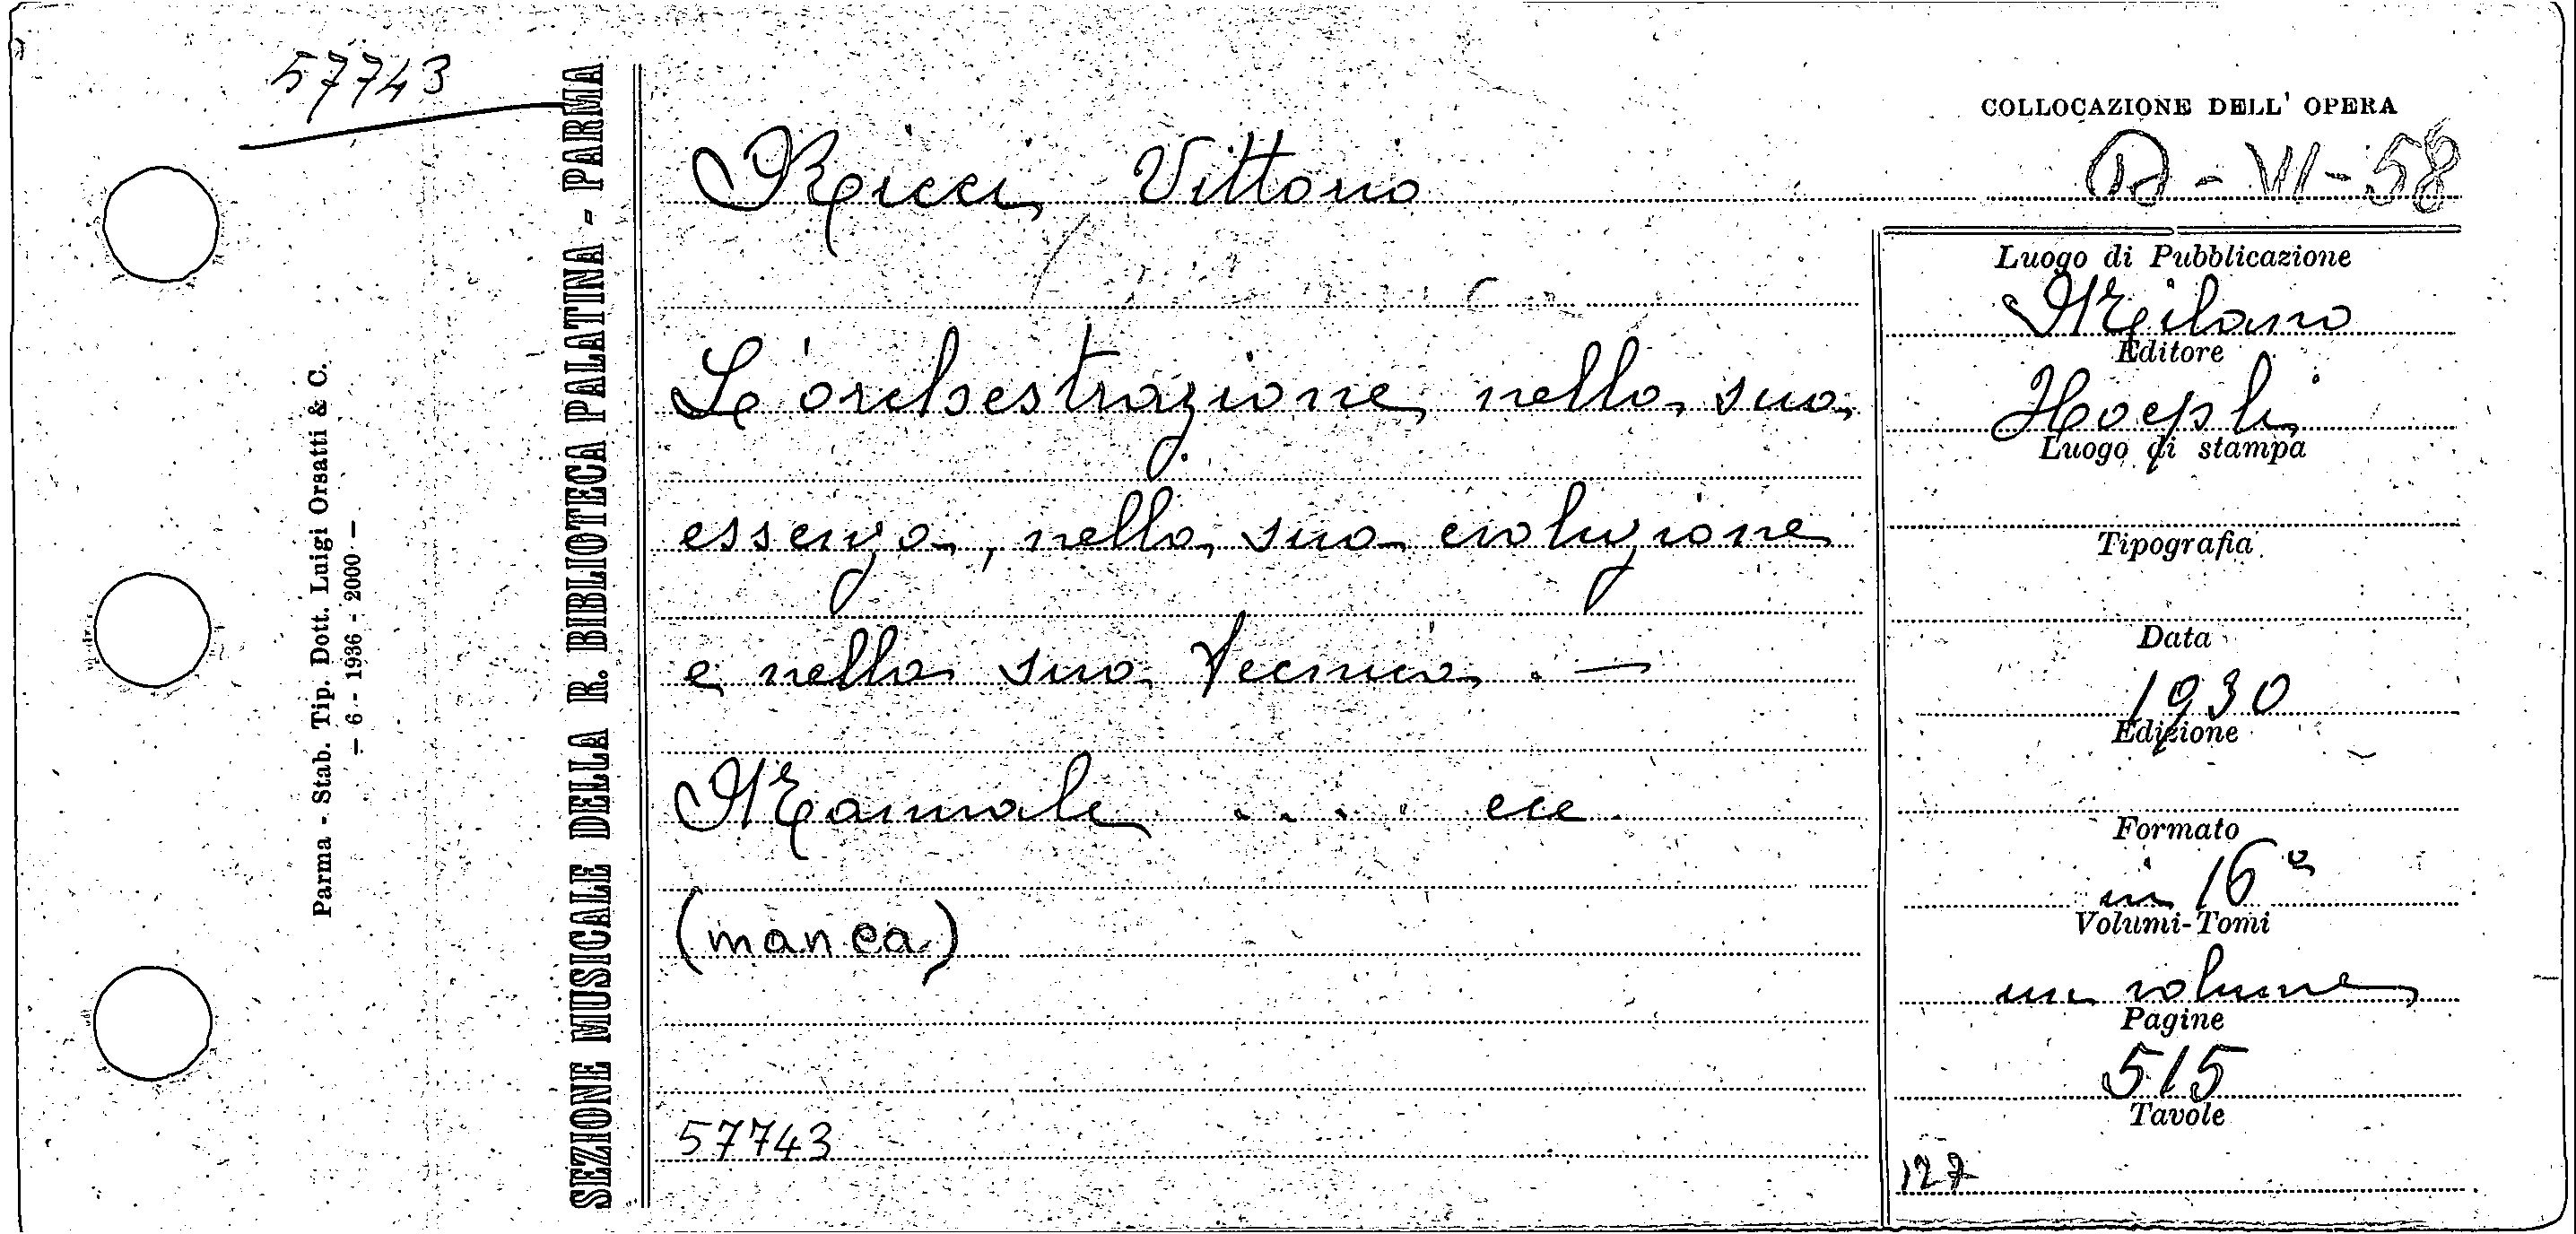 57743
Parma - Stab. Tip. Dott. Luigi Orsatti & C.
— 6 - 1936 - 2000 —
SEZIONE MUSICALE DELLA R. BIBLIOTECA PALATINA - PARMA
COLLOCAZIONE DELL' OPERA
D - VI - 58
Ricci Vittorio
L'orchestrazione nella sua
essenza, nella sua evoluzione
e nella sua tecnica. —
Manuale .... ecc.
(manca)
57743
Luogo di Pubblicazione
Milano
Editore
Hoepli
Luogo di stampa
Tipografia
Data
1930
Edizione
Formato
in 16°
Volumi-Tomi
un volume
Pagine
515
Tavole
127